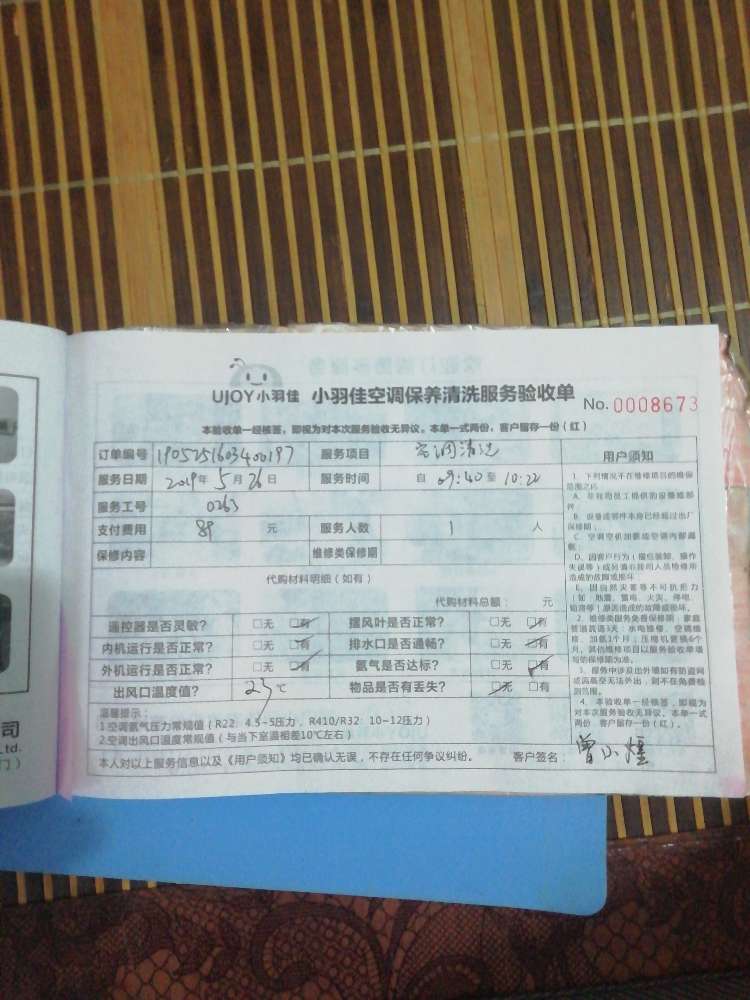 UJOY小羽佳 小羽佳空调保养清洗服务验收单 No.0008673
本验收单一经核签，即视为对本次服务验收无异议。本单一式两份，客户留存一份（红）
订单编号 1905251603400197 服务项目 空调清洗 用户须知
服务日期 2019年5月26日 服务时间 自09:40至10:22
服务工号 0263
支付费用 89 元 服务人数 1 人
保修内容 维修类保修期
代购材料明细（如有）
代购材料总额： 元
遥控器是否灵敏？ 口无 口有 摆风叶是否正常？ 口无 口有
内机运行是否正常？ 口无 口有 排水口是否通畅？ 口无 口有
外机运行是否正常？ 口无 口有 氨气是否达标？ 口无 口有
出风口温度值？ 23℃ 物品是否有丢失？ 口无 口有
温馨提示：
1.空调氨气压力常规值（R22：4.5~5压力，R410/R32：10~12压力）
2.空调出风口温度常规值（与当下室温相差10℃左右）
本人对以上服务信息以及《用户须知》均已确认无误，不存在任何争议纠纷。 客户签名：曾小煌
1、下列情况不在维修项目的维保
范围之内
A、非我司员工提供的设备维修部
件
B、设备或部件本身已经超过出厂
保修期；
C、空调空机加装或空调内部漏
D、因客户行为（擅自装卸、操作
失误等）或另请非我司人员检修所
造成的故障或损坏
E、因自然灾害等不可抗拒力
（如：地震、雷电、火灾、停电、
2、维修类服务免费保修期：家庭
管道疏通3天；水电维修、空调维
修、加氨1个月；压缩机更换6个
月，其他维修项目以服务验收单填
写的保修期为准。
3、服务中涉及出外墙如有防盗网
或高层空无法外出，则不在免费检
测范围。
4、本验收单一经核签，即视为
对本次服务验收无异议。本单一式
两份，客户留存一份（红）。
司
Ltd.
门）